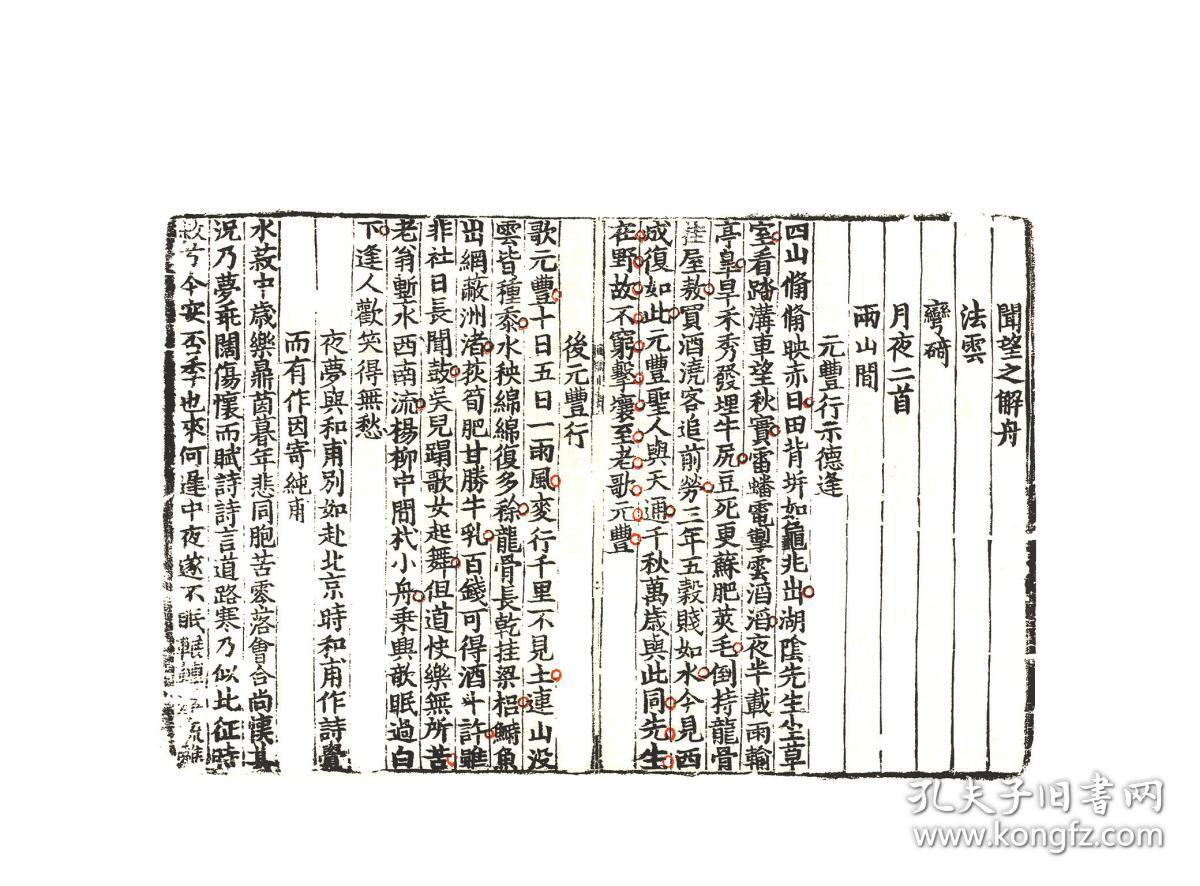 聞望之解舟
法雲
彎碕
月夜二首
兩山間
元豐行示德逢
四山翛翛映赤日田背坼如龜兆出湖陰先生坐草
室看踏溝車望秋實雷蟠電掣雲滔滔夜半載雨輸
亭皐旱禾秀發埋牛尻豆死更蘇肥莢毛倒持龍骨
挂屋敖買酒澆客追前勞三年五穀賤如水今見西
成復如此元豐聖人與天通千秋萬歲與此同先生
在野故不窮擊壤至老歌元豐
後元豐行
歌元豐十日五日一雨風麥行千里不見土連山没
雲皆種黍水秧綿綿復多稌龍骨長乾挂梁梠鰣魚
出網蔽洲渚荻筍肥甘勝牛乳百錢可得酒斗許雖
非社日長聞鼓吳兒蹋歌女起舞但道快樂無所苦
老翁塹水西南流楊柳中間杙小舟乗興欹眠過白
下逢人歡笑得無愁
夜夢與和甫别如赴北京時和甫作詩覺
而有作因寄純甫
水菽中歲樂鼎茵暮年悲同胞苦零落會合尚悽其
況乃夢乖闊傷懷而賦詩詩言道路寒乃似此征時
兮今安否季也來何遲中夜遂不眠
孔夫子旧書网
www.kongfz.com